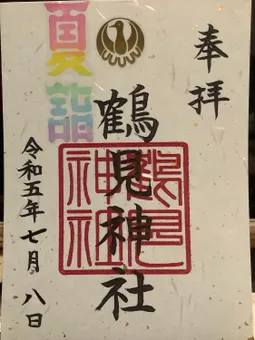 奉拝
夏詣
鶴見神社
鶴見神社
令和五年七月八日